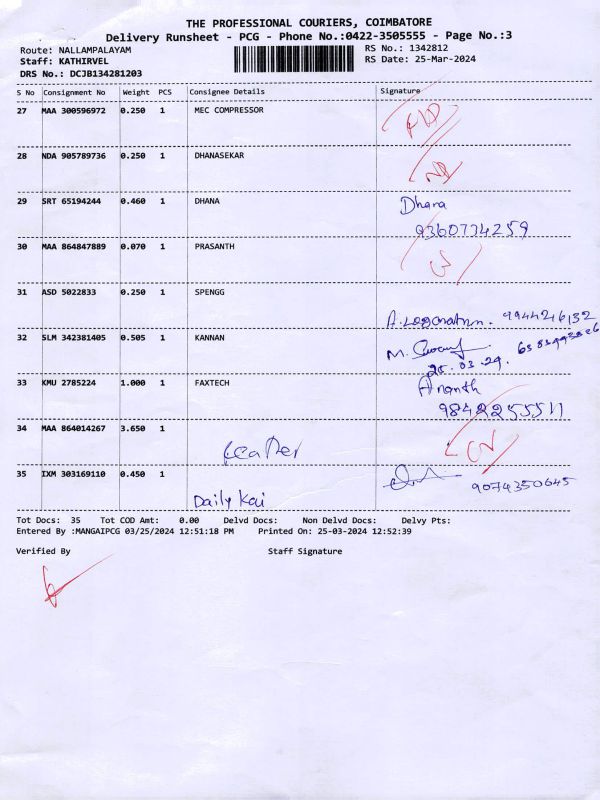 THE PROFESSIONAL COURIERS, COIMBATORE
Delivery Runsheet - PCG - Phone No.:0422-3505555 - Page No.:3
Route: NALLAMPALAYAM
RS No.: 1342812
Staff: KATHIRVEL
RS Date: 25-Mar-2024
DRS No.: DCJB134281203
S No Consignment No Weight PCS Consignee Details Signature
27 MAA 300596972 0.250 1 MEC COMPRESSOR
28 NDA 905789736 0.250 1 DHANASEKAR
29 SRT 65194244 0.460 1 DHANA Dhana
9360734259
30 MAA 864847889 0.070 1 PRASANTH
31 ASD 5022833 0.250 1 SPENGG
A. Loganathan. 9944216132
32 SLM 342381405 0.505 1 KANNAN
M.
25.03.24.
33 KMU 2785224 1.000 1 FAXTECH Ananth
9842255511
34 MAA 864014267 3.650 1
35 IXM 303169110 0.450 1
9074350645
Daily Kai
Tot Docs: 35 Tot COD Amt: 0.00 Delvd Docs: Non Delvd Docs: Delvy Pts:
Entered By :MANGAIPCG 03/25/2024 12:51:18 PM Printed On: 25-03-2024 12:52:39
Verified By Staff Signature